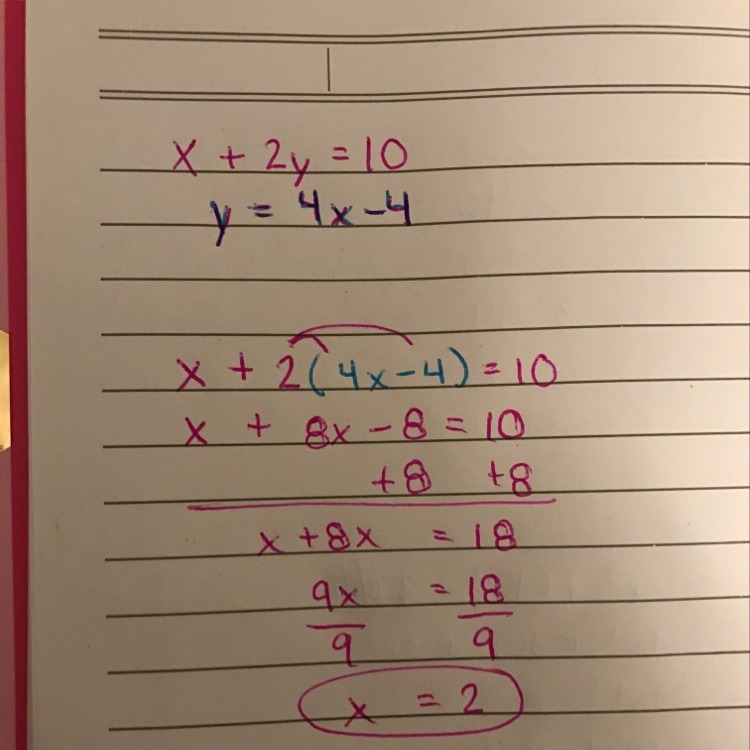 x + 2y = 10
y = 4x - 4
x + 2(4x - 4) = 10
x + 8x - 8 = 10
+8 +8
x + 8x = 18
9x = 18
9 9
x = 2